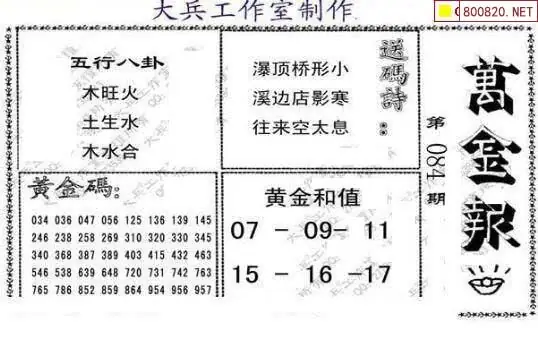 大兵工作室制作
0800820.NET
五行八卦
木旺火
土生水
木水合
送碼詩：
瀑顶桥形小
溪边店影寒
往来空太息
第084期
萬金報
黄金碼：
034 036 047 056 125 136 139 145
246 238 258 269 310 320 330 345
340 368 387 389 403 415 432 463
546 538 639 648 720 731 742 763
765 786 852 859 864 954 956 957
黄金和值
07 - 09- 11
15 - 16 -17